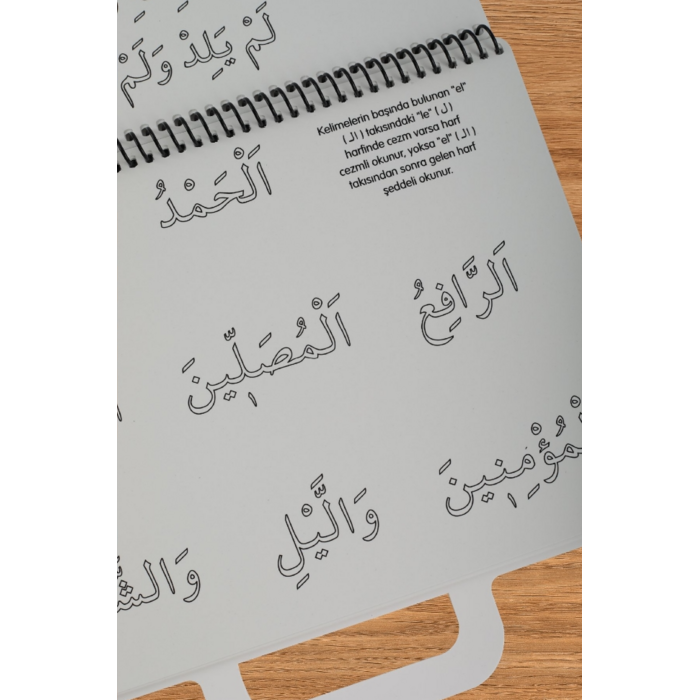 لَمْ يَلِدْ وَلَمْ
Kelimelerin başında bulunan "el"
( الـ ) takısındaki "le" ( لـ )
harfinde cezm varsa harf
cezmli okunur, yoksa "el" ( الـ )
takısından sonra gelen harf
şeddeli okunur.
اَلْحَمْدُ
اَلرَّافِعُ اَلْمُصَلّ۪ينَ
لْمُؤْمِن۪ينَ وَالَّيْلِ